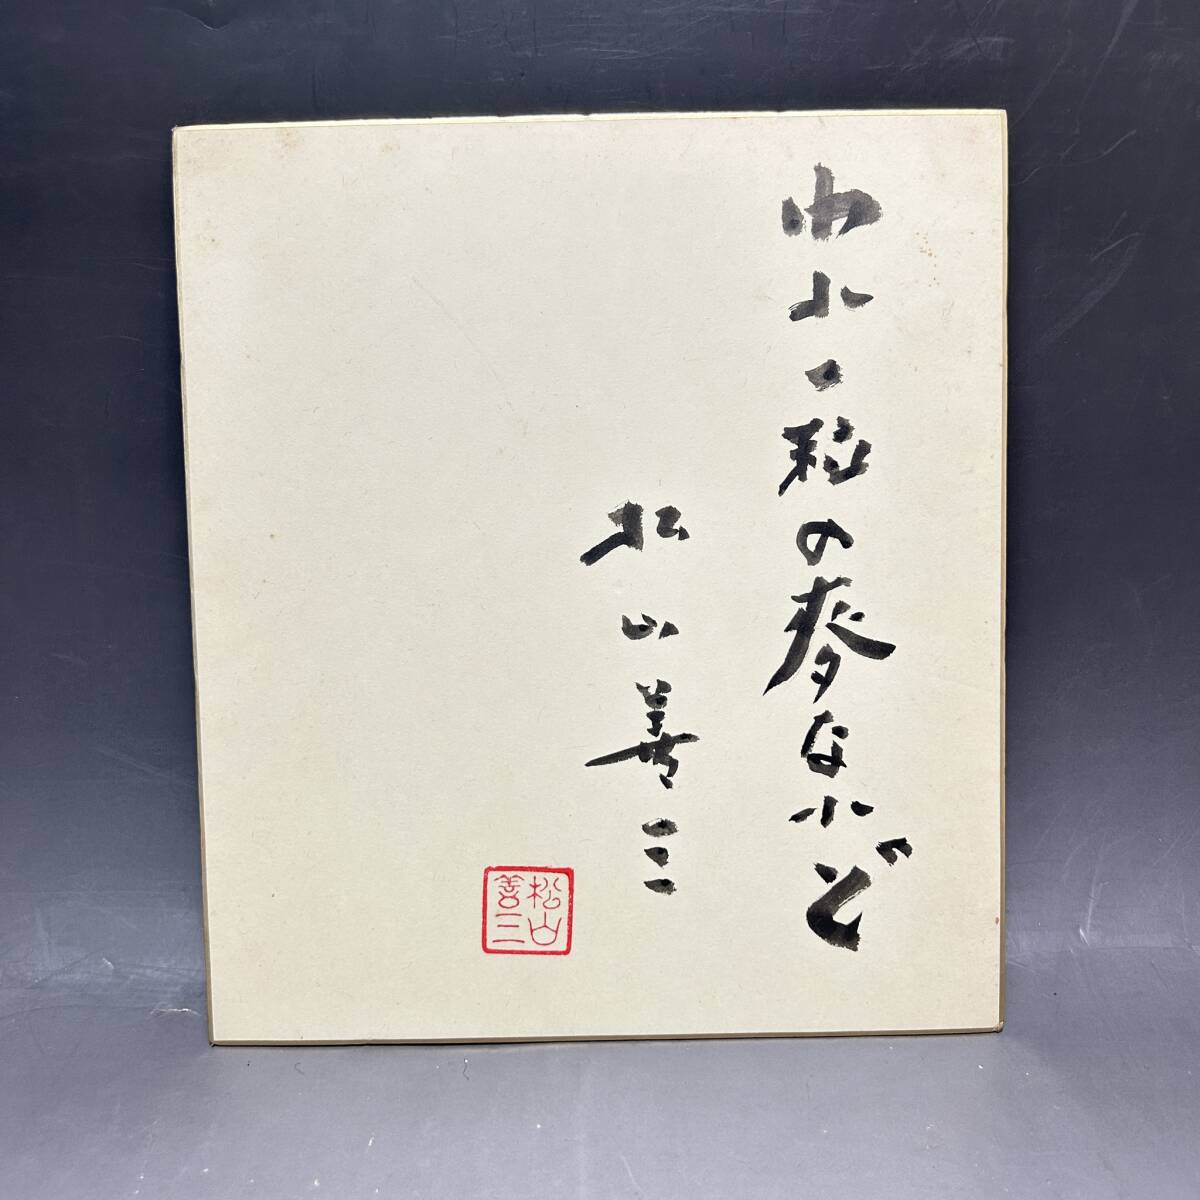 われ一粒の麦なれど
松山善三
松山
善三